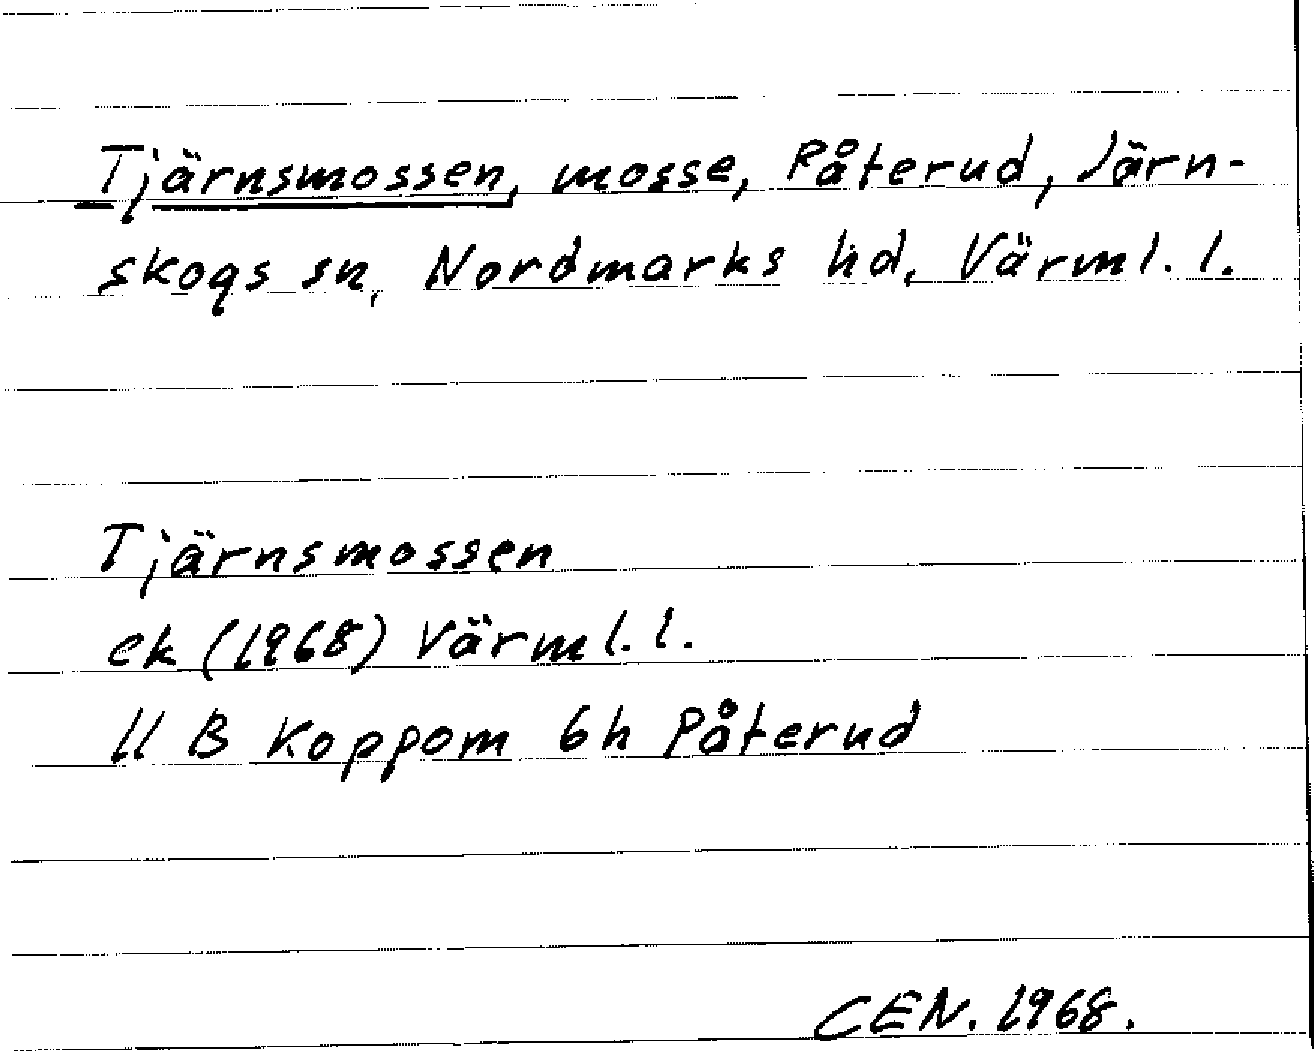 Tjärnsmossen, mosse, Påterud, Järn-
skogs sn, Nordmarks hd, Värml. l.
Tjärnsmossen
ek (1968) Värml. l.
11 B Koppom 6h Påterud
CEN. 1968.